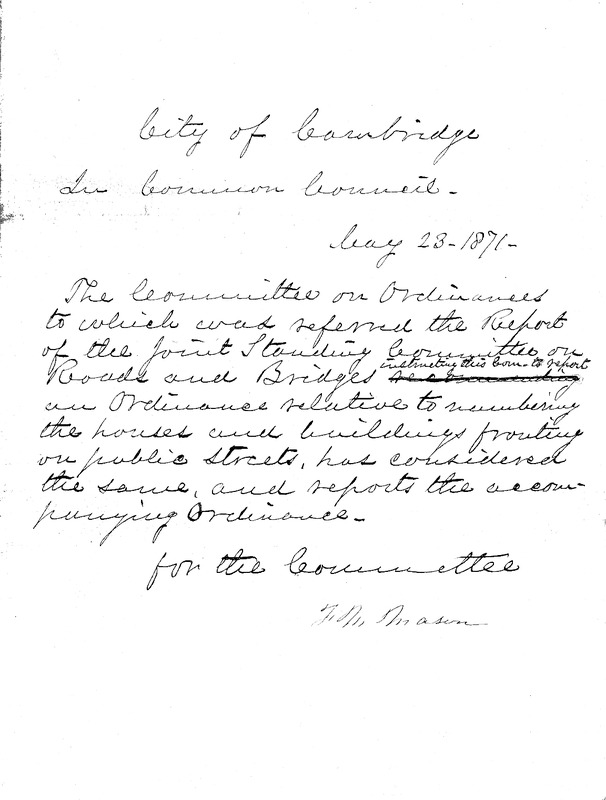 City of Cambridge
In Common Council-
May 23-1871-
The Committee on Ordinances
to which was referred the Report
of the Joint Standing Committee on
instructing this Com- to report
Roads and Bridges recommending
an Ordinance relative to numbering
the houses and buildings fronting
on public streets, has considered
the same, and reports the accom-
panying Ordinance-
for the Committee
Mason